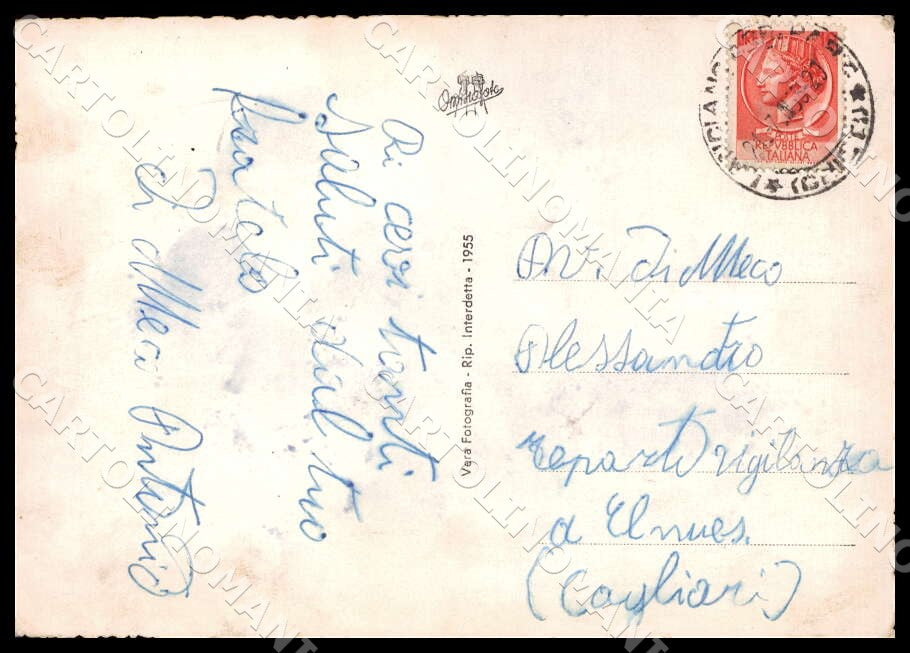 Ri cevi tanti
Saluti dal tuo
fratelo
Di Meco Antonio
Omniafoto
Vera Fotografia - Rip. Interdetta - 1955
POSTE
REPVBBLICA
ITALIANA
(CHIETI)
Av. Di Meco
Alessandro
reparto vigilanza
a Elmas
(Cagliari)
CARTOLINOMANIA